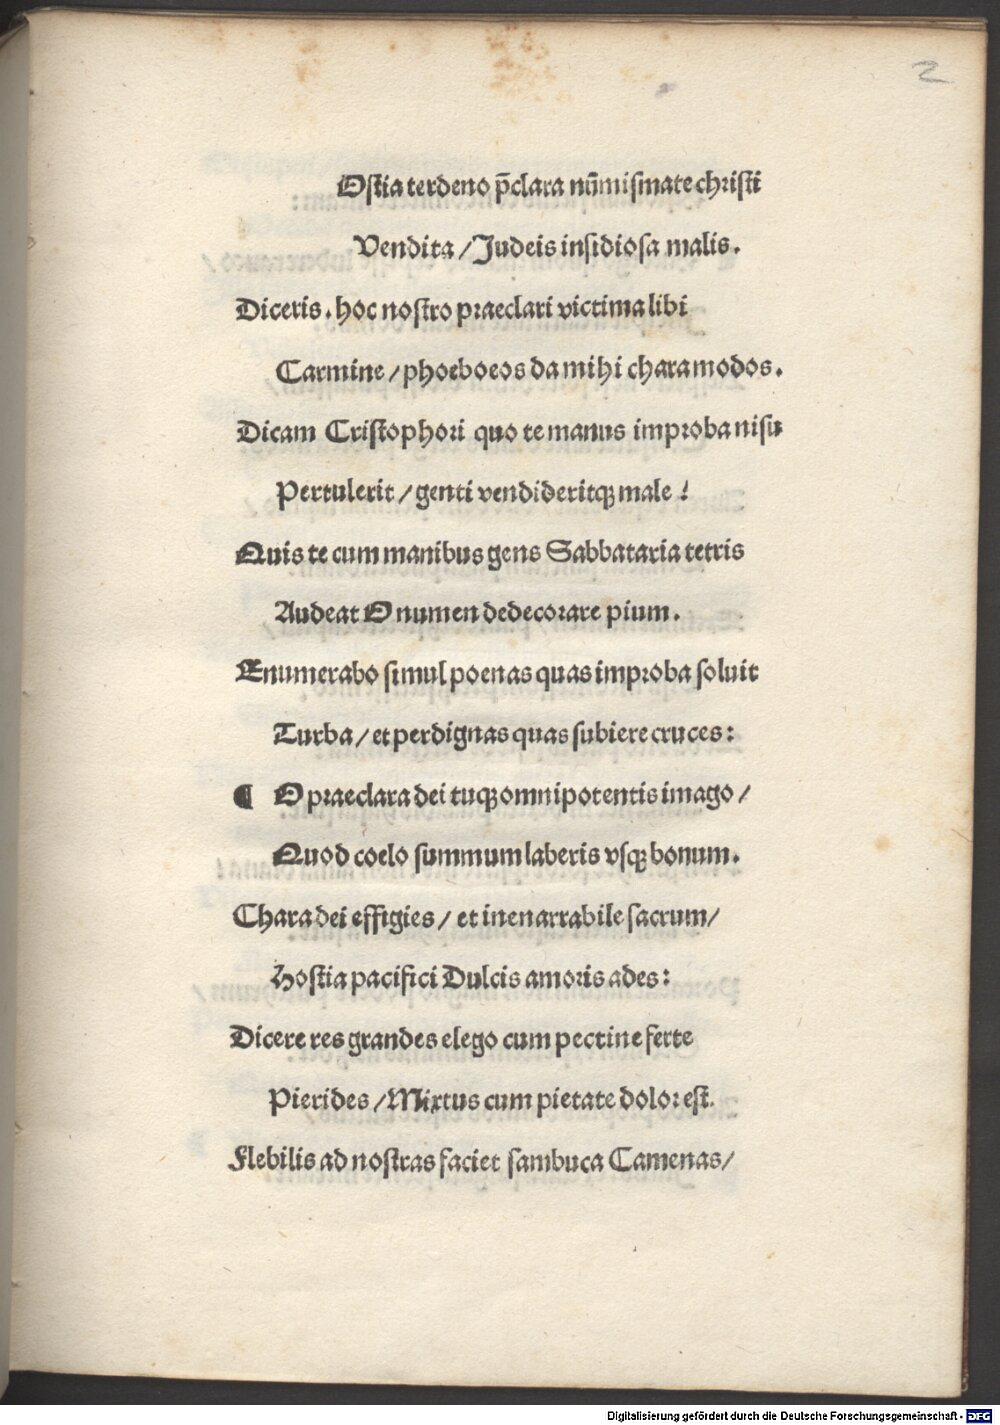 2
Ostia terdeno p̄clara nūmismate christi
Vendita / Judeis insidiosa malis.
Diceris. hoc nostro praeclari victima libi
Carmine / phoeboeos da mihi chara modos.
Dicam Cristophori quo te manus improba nisu
Pertulerit / genti vendideritqꝫ male!
Quis te cum manibus gens Sabbataria tetris
Audeat O numen dedecorare pium.
Enumerabo simul poenas quas improba soluit
Turba / et perdignas quas subiere cruces:
¶ O praeclara dei tuqꝫ omnipotentis imago /
Quod coelo summum laberis vsqꝫ bonum.
Chara dei effigies / et inenarrabile sacrum /
Hostia pacifici Dulcis amoris ades:
Dicere res grandes elego cum pectine ferte
Pierides / Mixtus cum pietate dolor est.
Flebilis ad nostras faciet sambuca Camenas /
Digitalisierung gefördert durch die Deutsche Forschungsgemeinschaft - DFG